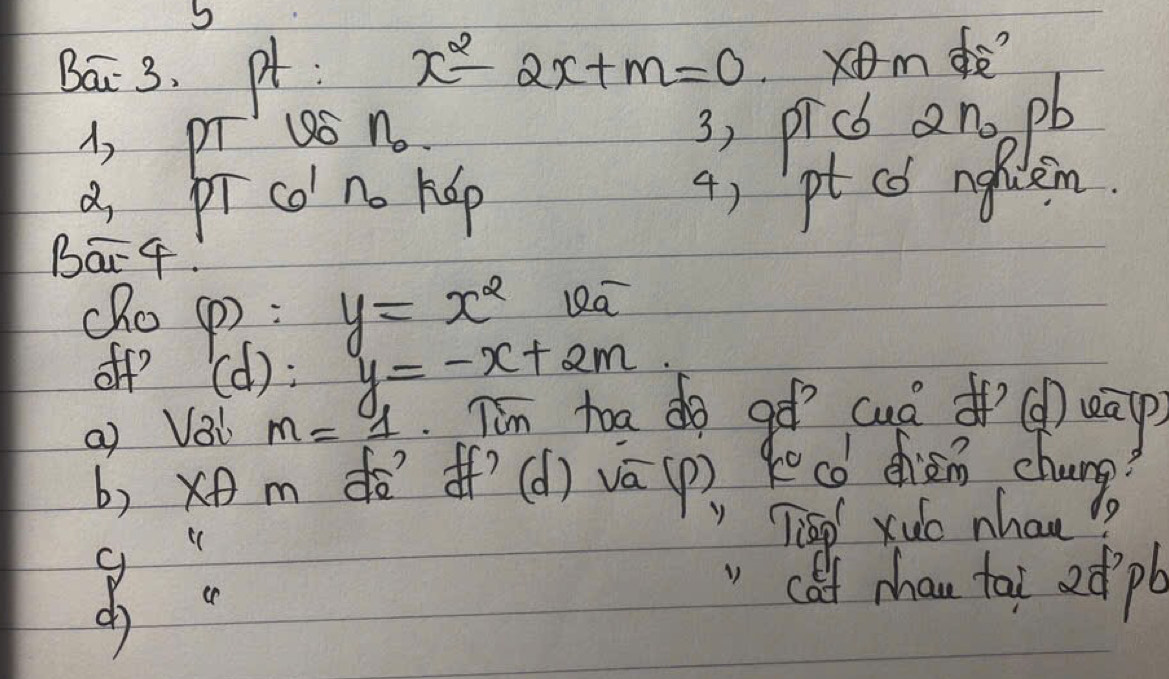 5
Bài 3. pt: x² - 2x + m = 0. XĐ m để
1, PT vô n₀. 3, PT có 2 n₀ pb
2, PT có n₀ kép 4, pt có nghiệm.
Bài 4.
Cho (p): y = x² và
đt' (d): y = -x + 2m.
a) Với m = 1. Tìm toạ độ gđ' của đt' (d) và (p)
b) XĐ m để đt' (d) và (p) k° có điểm chung?
c) " " Tiếp xúc nhau?
d) " " cắt nhau tại 2đ' pb